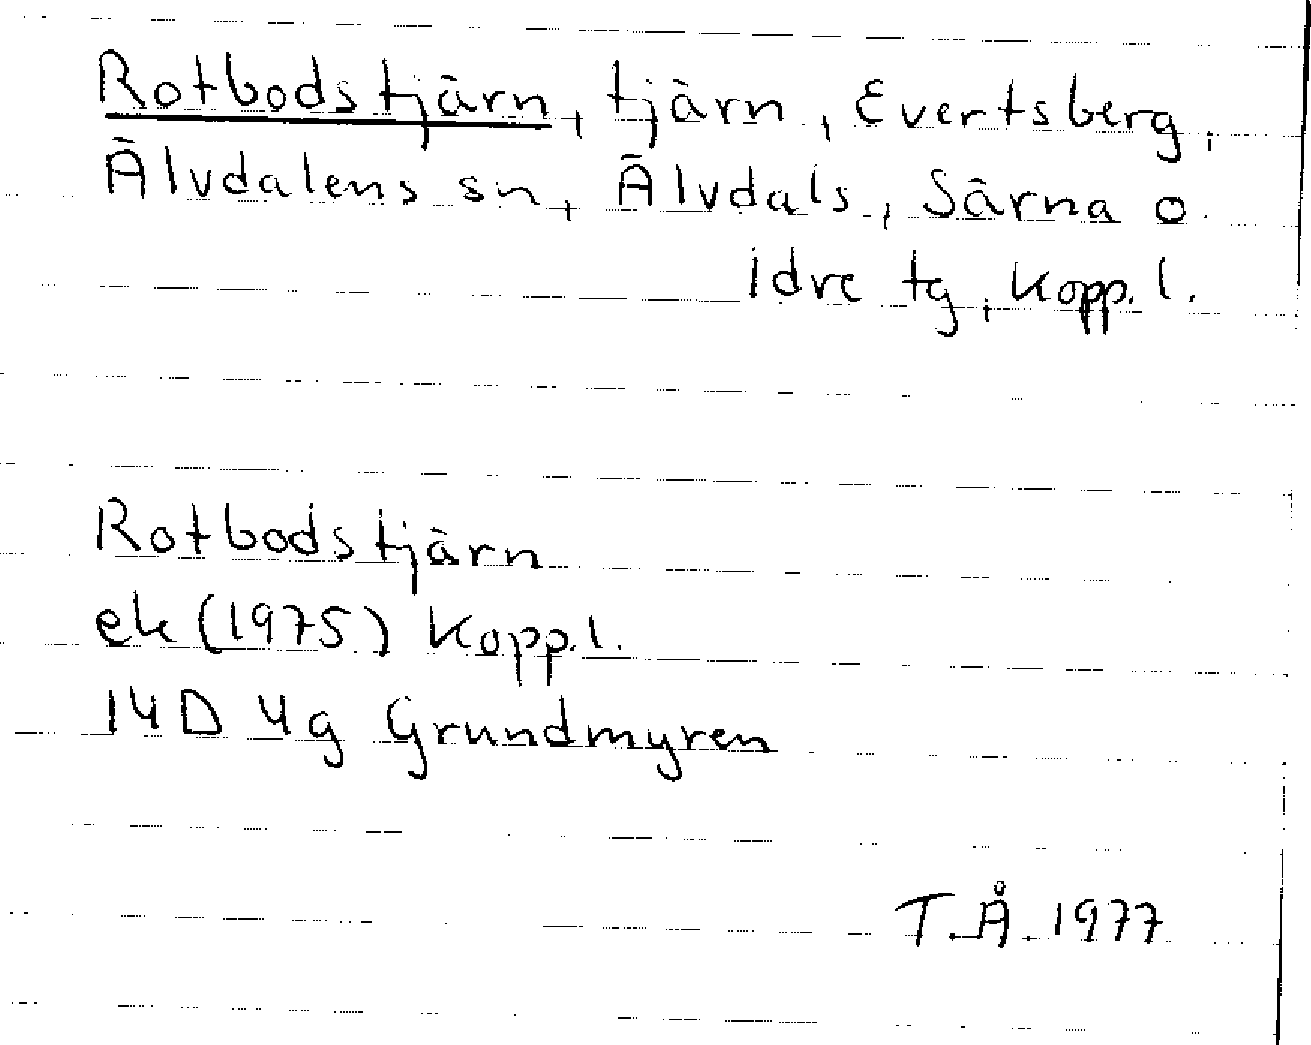 Rotbodstjärn, tjärn, Evertsberg,
Älvdalens sn, Älvdals, Särna o.
Idre tg, Kopp. l.
Rotbodstjärn
ek (1975) Kopp. l.
14D 4g Grundmyren
T.Å. 1977